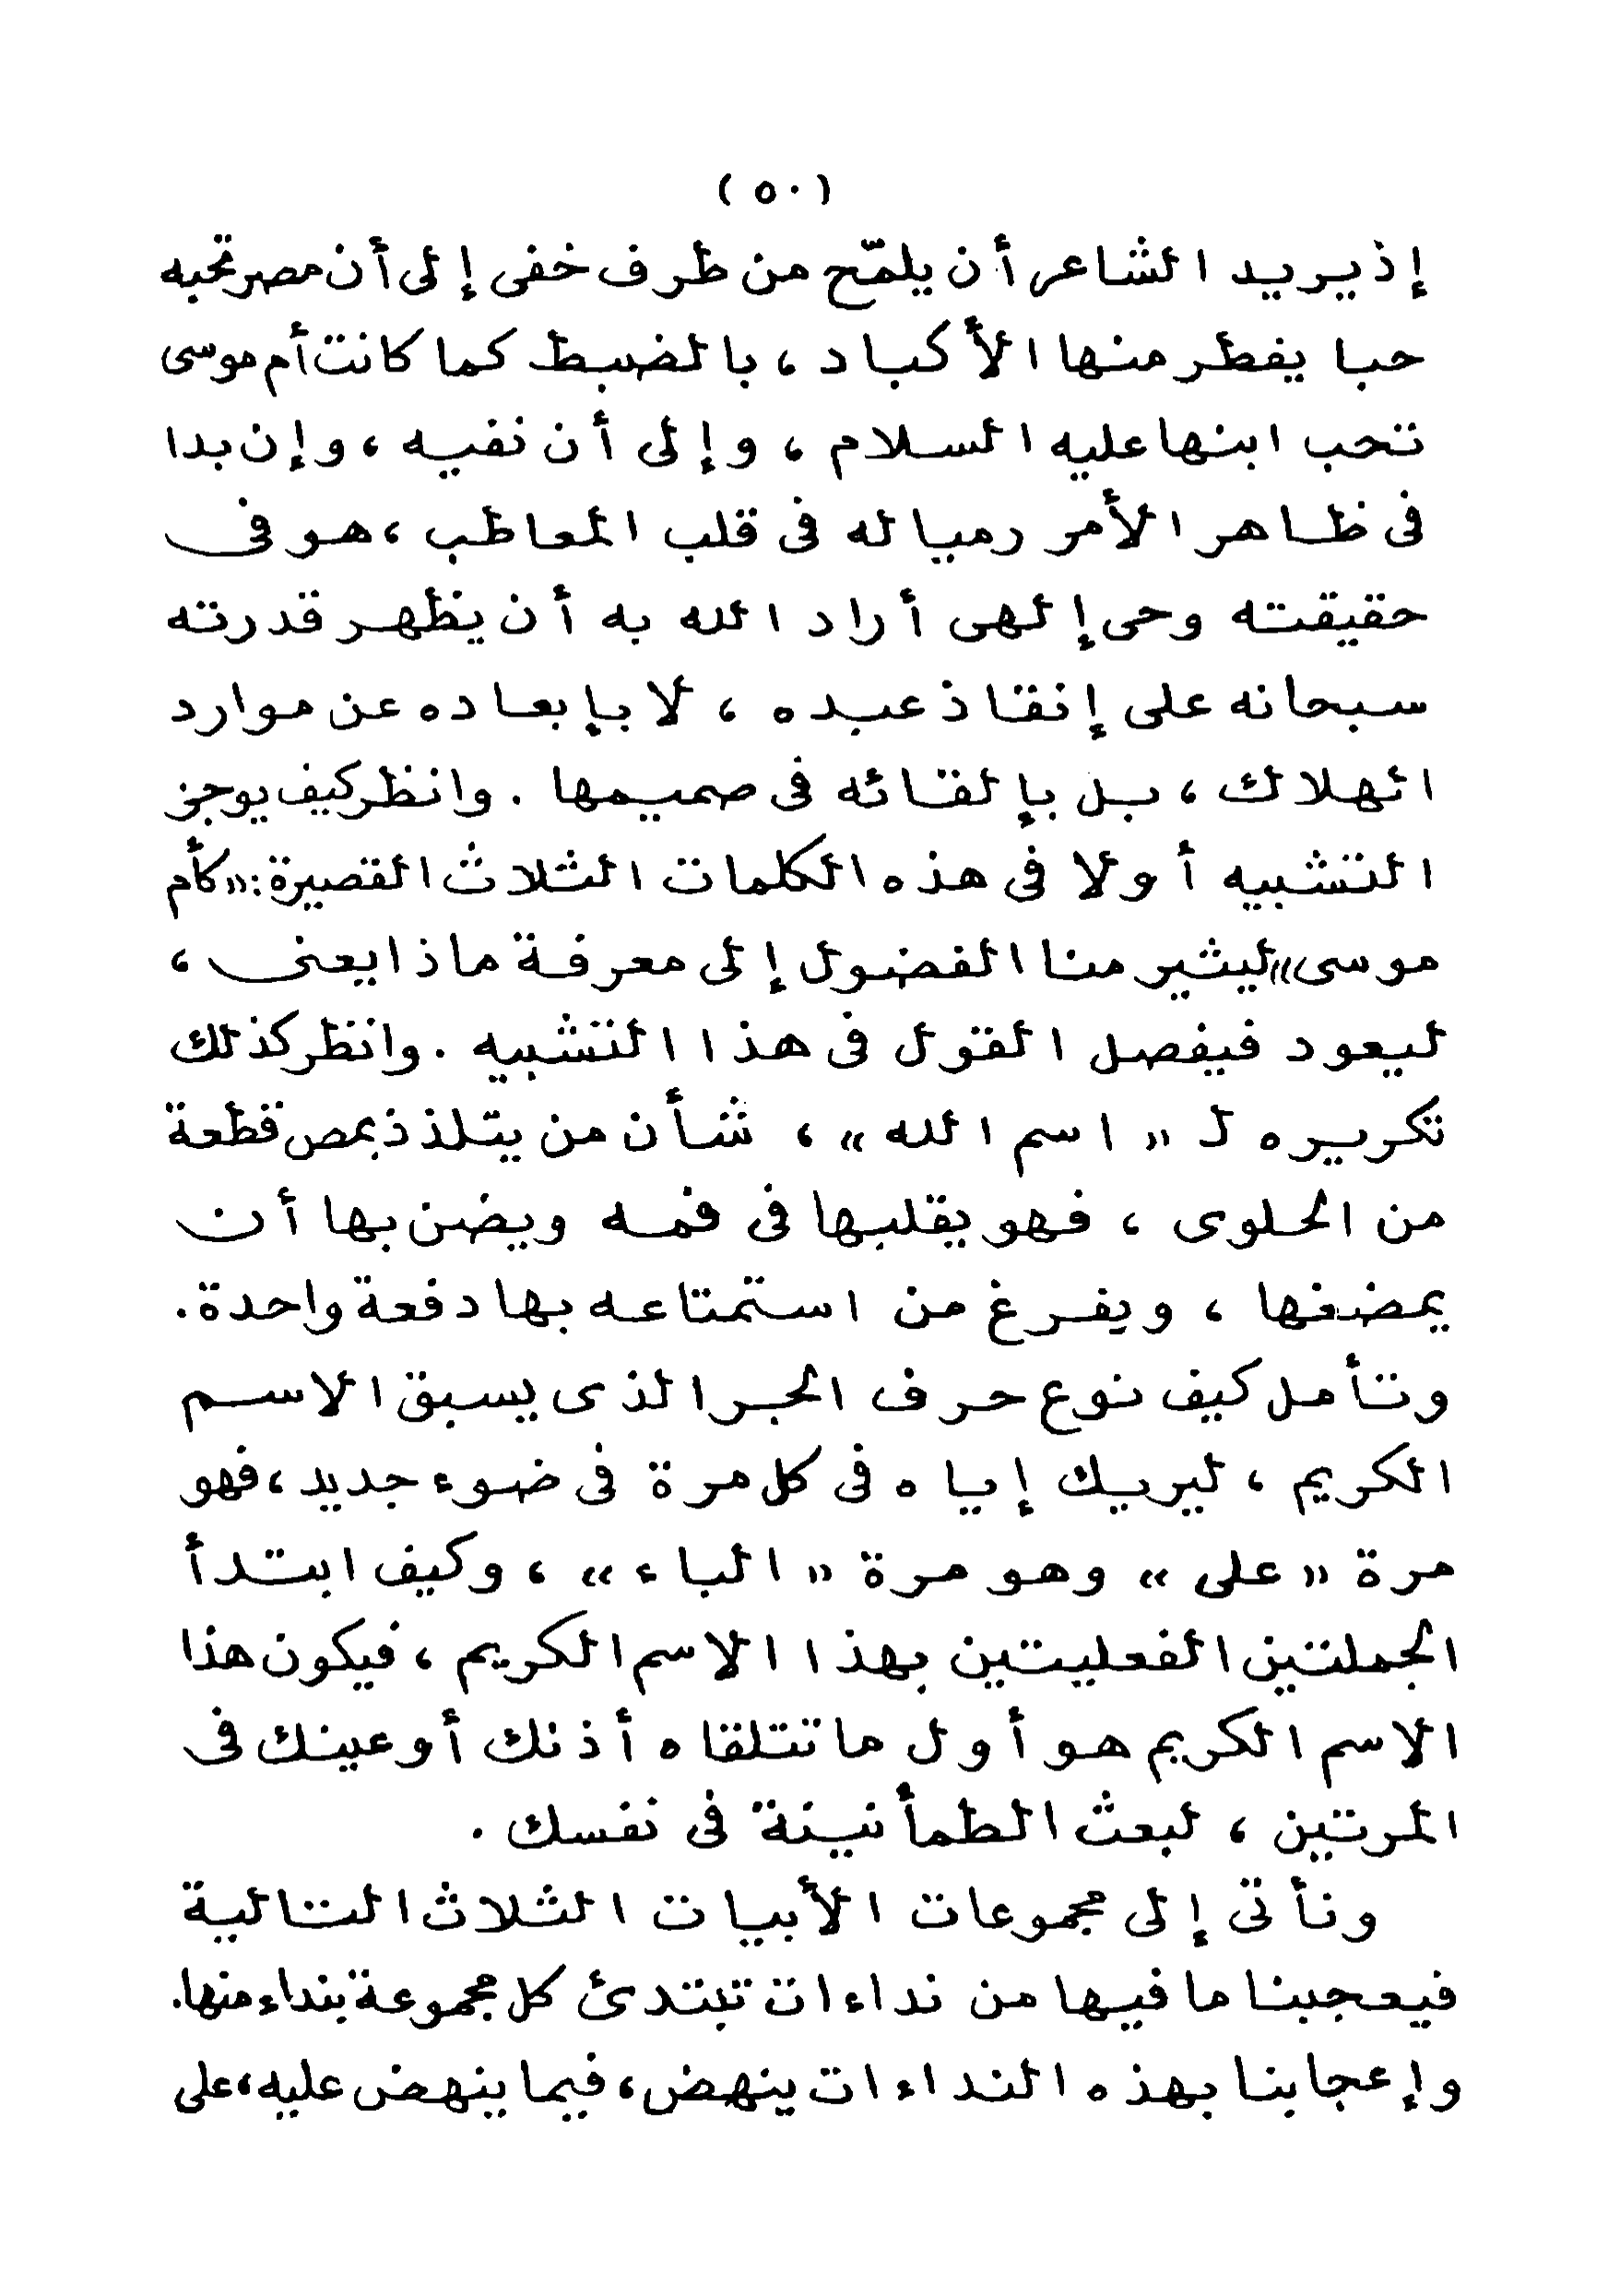 ( ٥٠ )
إذ يريد الشاعر أن يلمّح من طرف خفى إلى أن مصر تحبه
حبا يفطر منها الأكباد ، بالضبط كما كانت أم موسى
تحب ابنها عليه السلام ، وإلى أن نفيه ، وإن بدا
فى ظاهر الأمر رميا له فى قلب المعاطب ، هو فى
حقيقته وحى إلهى أراد الله به أن يظهر قدرته
سبحانه على إنقاذ عبده ، لا بإبعاده عن موارد
الهلاك ، بل بإلقائه فى صميمها . وانظر كيف يوجز
التشبيه أولا فى هذه الكلمات الثلاث القصيرة : « كأم
موسى » ليثير منا الفضول إلى معرفة ماذا يعنى ،
ليعود فيفصل القول فى هذا التشبيه . وانظر كذلك
تكريره لـ « اسم الله » ، شأن من يتلذذ بمص قطعة
من الحلوى ، فهو يقلبها فى فمه ويضن بها أن
يمضغها ، ويفرغ من استمتاعه بها دفعة واحدة .
وتأمل كيف نوع حرف الجر الذى يسبق الاسم
الكريم ، ليريك إياه فى كل مرة فى ضوء جديد ، فهو
مرة « على » وهو مرة « الباء » ، وكيف ابتدأ
الجملتين الفعليتين بهذا الاسم الكريم ، فيكون هذا
الاسم الكريم هو أول ما تتلقاه أذنك أو عينك فى
المرتين ، لبعث الطمأنينة فى نفسك .
ونأتى إلى مجموعات الأبيات الثلاث التالية
فيعجبنا ما فيها من نداءات تبتدئ كل مجموعة بنداء منها .
وإعجابنا بهذه النداءات ينهض ، فيما ينهض عليه ، على